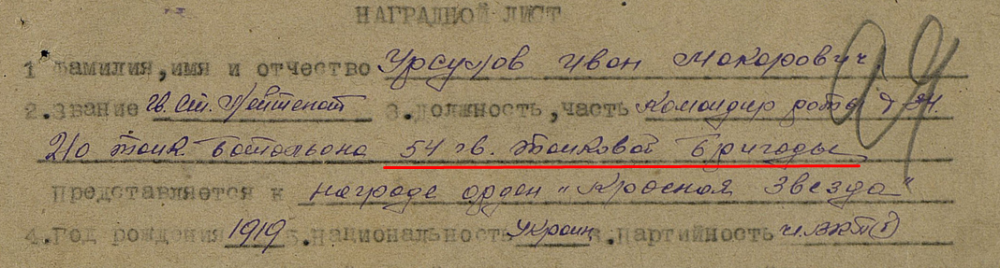 НАГРАДНОЙ ЛИСТ
1 Фамилия, имя и отчество Урсулов Иван Макарович
2. Звание Гв. Ст. Лейтенант 3. Должность, часть Командир роты
2го танк батальона 54 гв. танковой бригады
Представляется к награде орден "Красная Звезда"
4. Год рождения 1919 5. Национальность Украин 6. Партийность чл. ВКП(б)